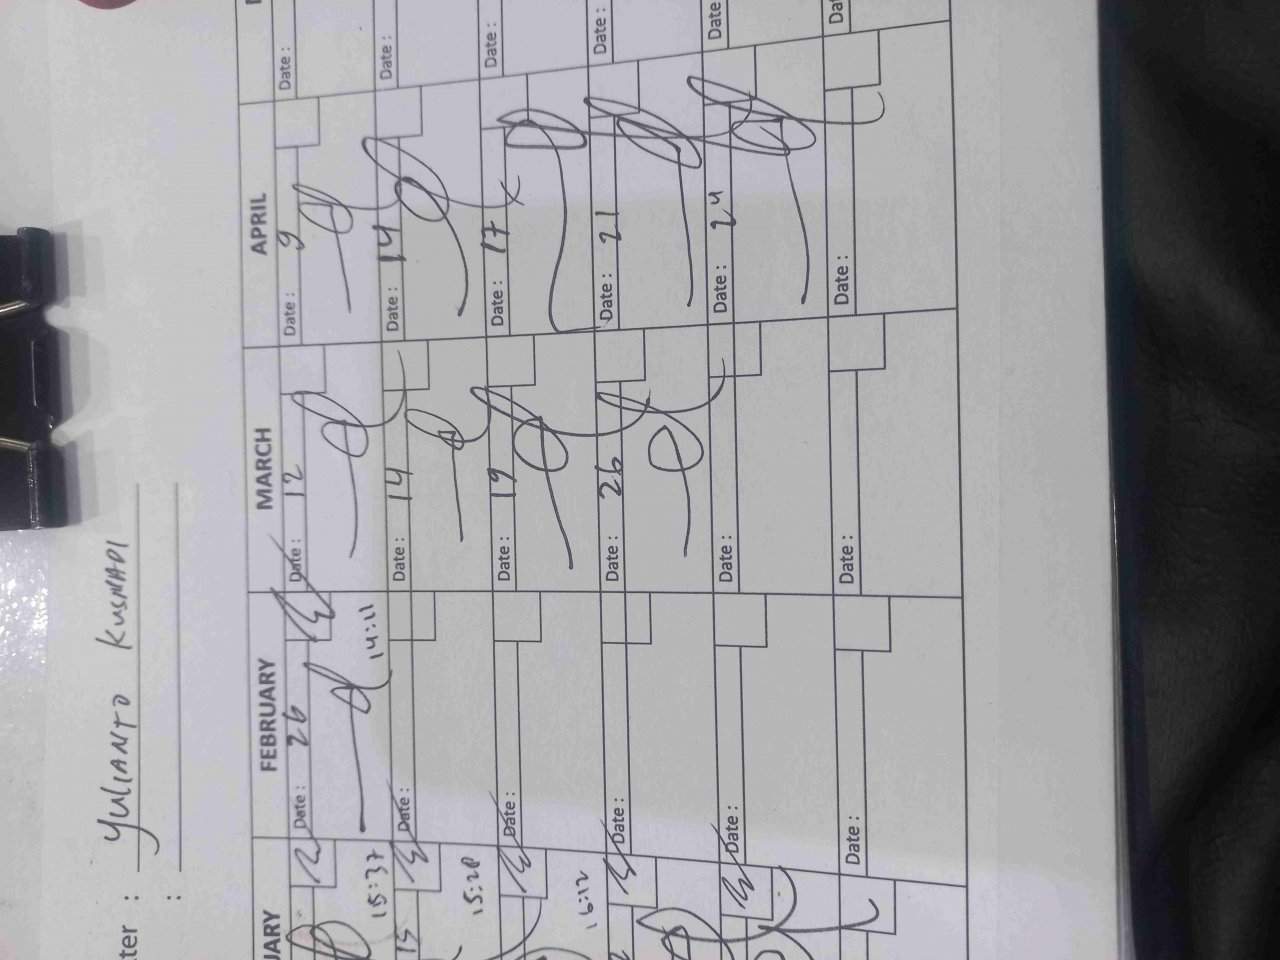 ter : YULIANTO KUSMADI
:
UARY FEBRUARY MARCH APRIL
Date : 26 Date : 12 Date : 9 Date :
15:37 14:11
15 Date : Date : 14 Date : 14 Date :
15:28
Date : Date : 19 Date : 17 Date :
16:12
Date : Date : 26 Date : 21 Date :
Date : Date : Date : 24 Date
Date : Date : Date : Dat